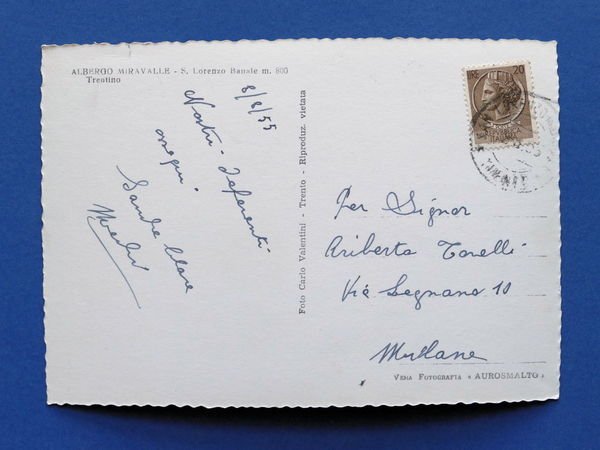 ALBERGO MIRAVALLE - S. Lorenzo Banale m. 800
Trentino
8/8/55
Nostri
ossequi.
Sandra Clara
Foto Carlo Valentini - Trento - Riproduz. vietata
LIRE 20
Per Signor
Ariberto Torelli
Via Legnano 10
Millano
VERA FOTOGRAFIA « AUROSMALTO »